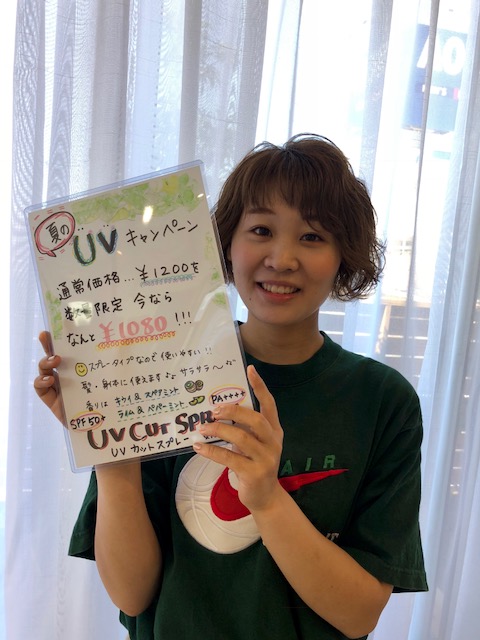 夏の
UV キャンペーン
通常価格…¥1200を
限定 今なら
なんと ¥1080 !!!
スプレータイプなので使いやすい!!
髪・身体に使えます♪ サラサラ〜
香りは キウイ&スペアミント
ライム&ペパーミント
SPF50+
PA++++
UV CUT SPR
UVカットスプレー
AIR